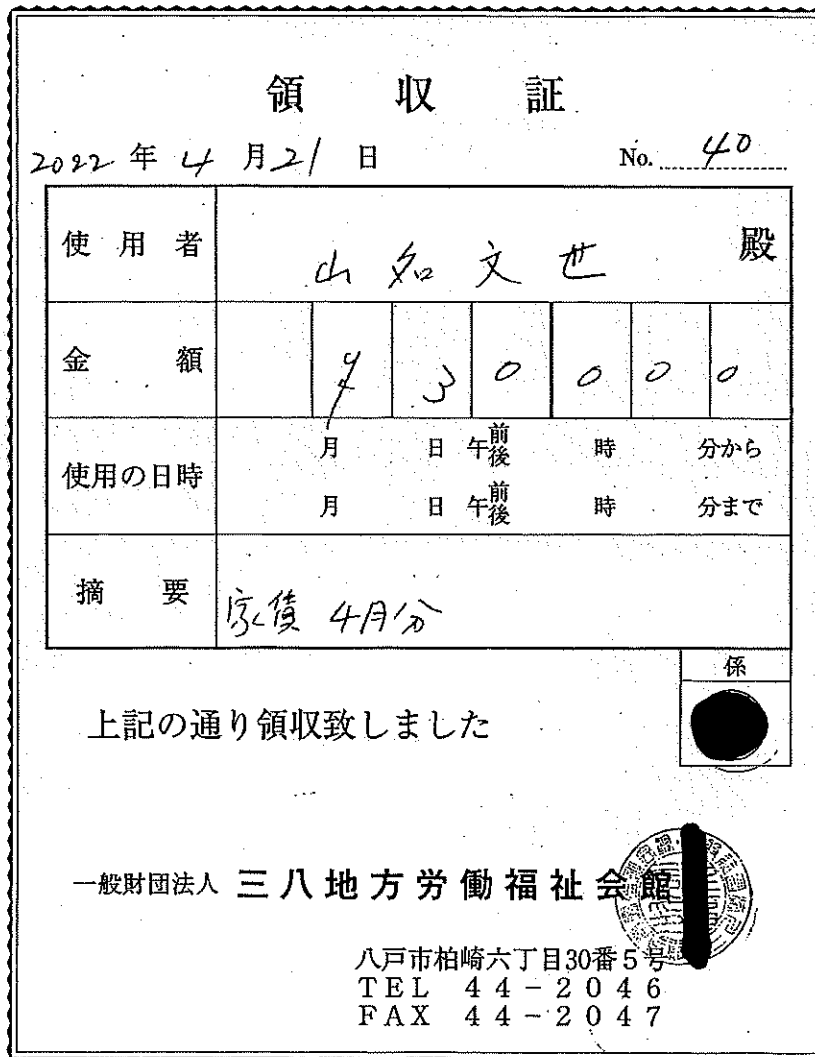 領収証
2022年4月21日 No. 40
使用者 山名文世 殿
金額 ¥30000
使用の日時 月 日 午前後 時 分から
月 日 午前後 時 分まで
摘要 家賃 4月分
係
上記の通り領収致しました
一般財団法人 三八地方労働福祉会館
八戸市柏崎六丁目30番5号
TEL 44-2046
FAX 44-2047